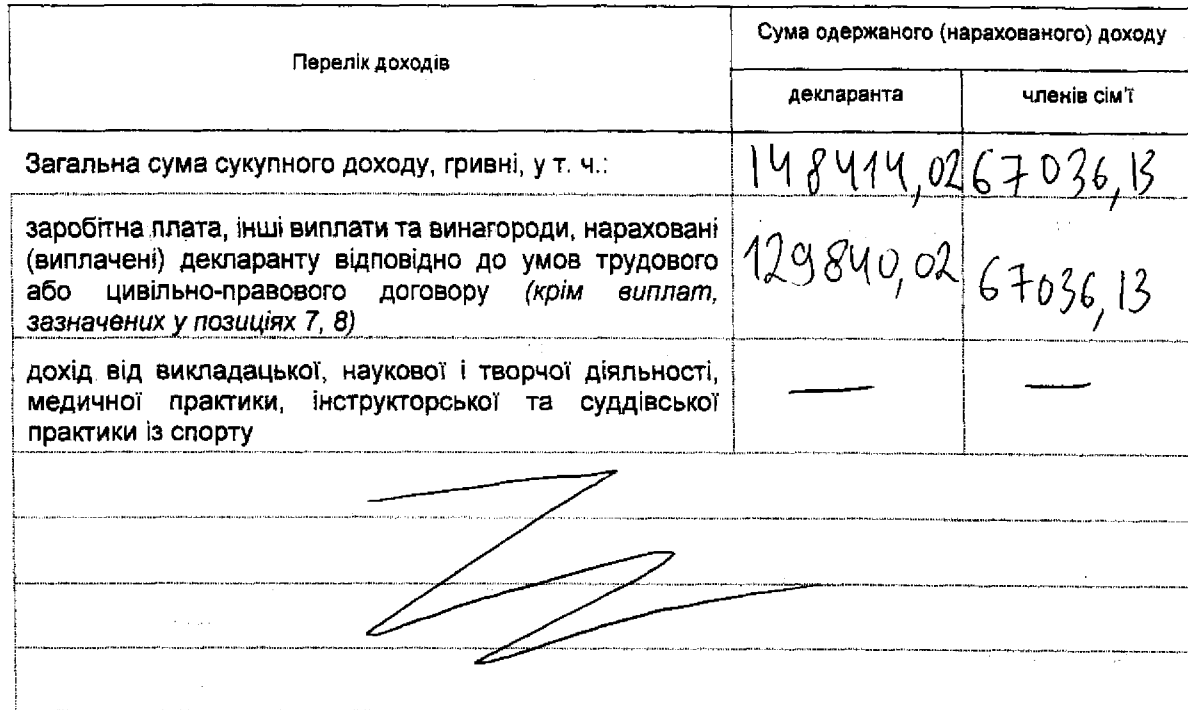 Перелік доходів
Сума одержаного (нарахованого) доходу
декларанта
членів сім'ї
Загальна сума сукупного доходу, гривні, у т. ч.:
148414,02
67036,13
заробітна плата, інші виплати та винагороди, нараховані
(виплачені) декларанту відповідно до умов трудового
або цивільно-правового договору (крім виплат,
зазначених у позиціях 7, 8)
129840,02
67036,13
дохід від викладацької, наукової і творчої діяльності,
медичної практики, інструкторської та суддівської
практики із спорту
—
—